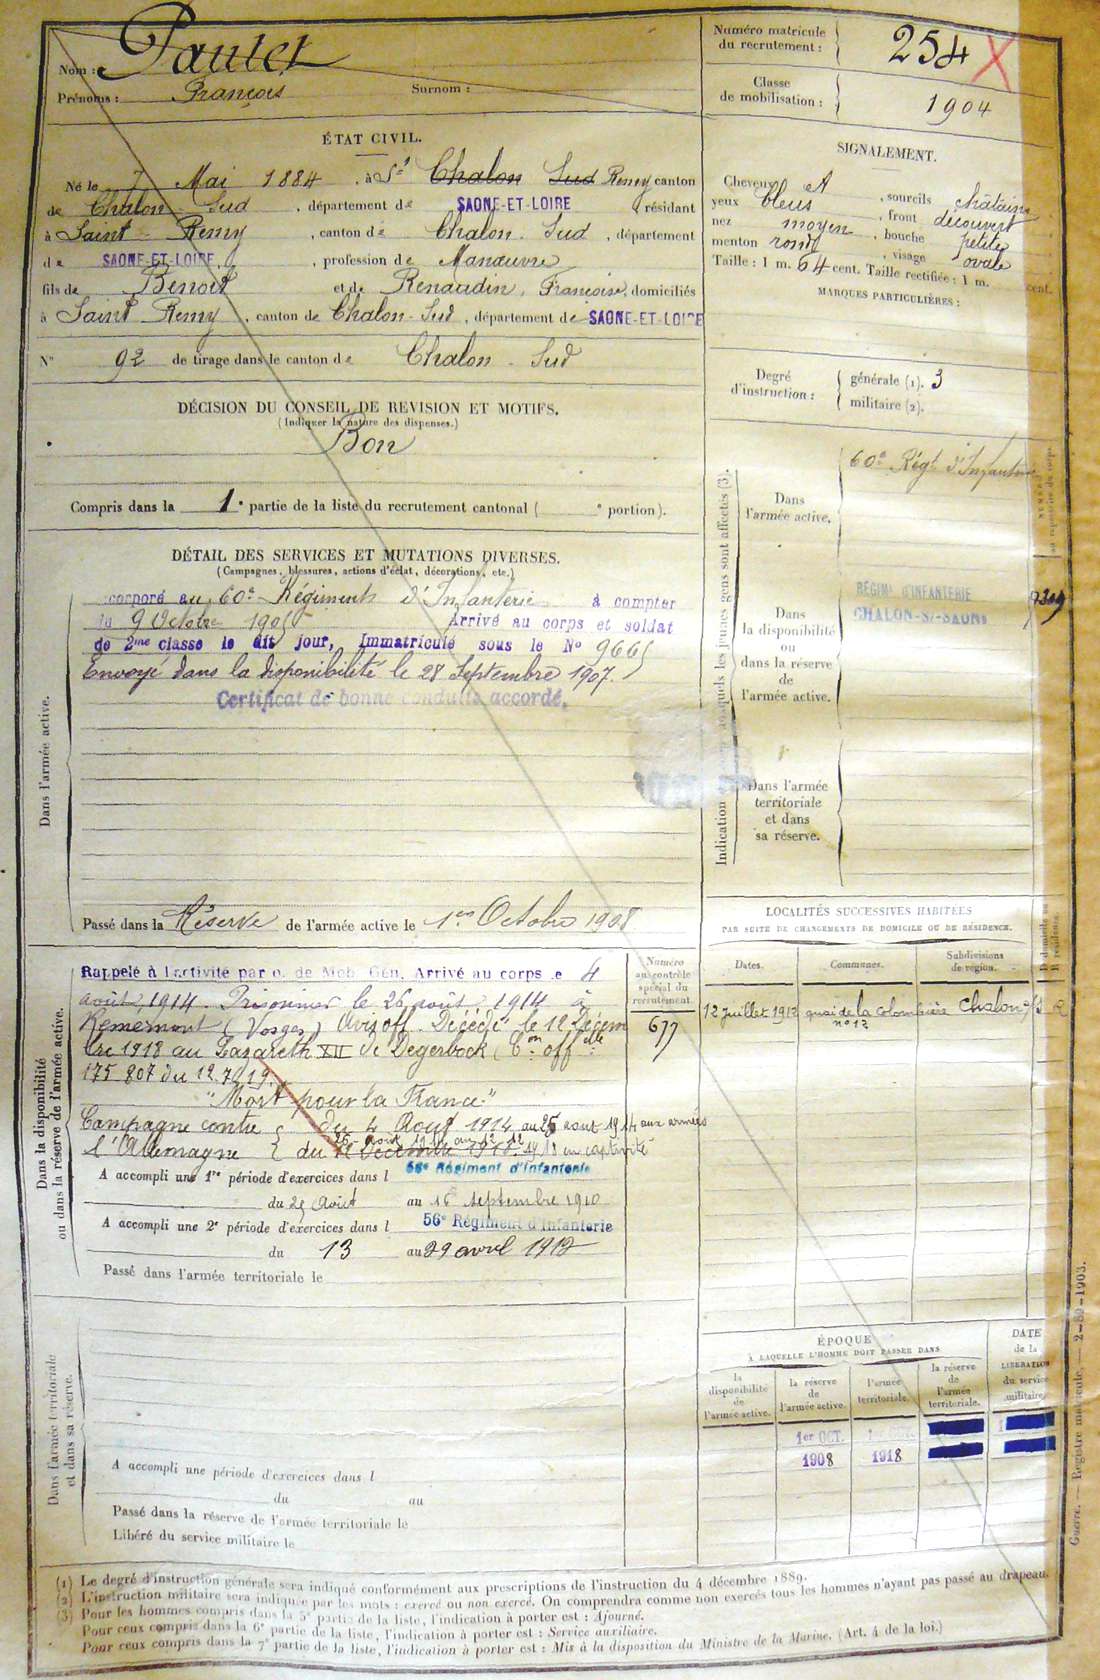 Nom : Pautet
Prénoms : François Surnom :
Numéro matricule du recrutement : 254
Classe de mobilisation : 1904
ÉTAT CIVIL.
Né le 7 Mai 1884, à St Chalon Sud Remy canton
de Chalon - Sud, département de SAONE-ET-LOIRE, résidant
à Saint Remy, canton de Chalon. Sud, département
de SAONE-ET-LOIRE, profession de Manœuvre
fils de Benoit et de Renaudin, Françoise, domiciliés
à Saint Remy, canton de Chalon-Sud, département de SAONE-ET-LOIRE
N° 92 de tirage dans le canton de Chalon - Sud
SIGNALEMENT.
Cheveux A, sourcils châtains
yeux bleus, front découvert
nez moyen, bouche petite
menton rond, visage ovale
Taille : 1 m. 64 cent. Taille rectifiée : 1 m. cent.
MARQUES PARTICULIÈRES :
Degré d'instruction : générale (1). 3
militaire (2).
DÉCISION DU CONSEIL DE REVISION ET MOTIFS.
(Indiquer la nature des dispenses.)
Bon
Compris dans la 1e partie de la liste du recrutement cantonal ( e portion).
DÉTAIL DES SERVICES ET MUTATIONS DIVERSES.
(Campagnes, blessures, actions d'éclat, décorations, etc.)
Dans l'armée active.
corporé au 60e Régiment d'Infanterie à compter
du 9 Octobre 1905 Arrivé au corps et soldat
de 2me classe le dit jour, Immatriculé sous le No 9665
Envoyé dans la disponibilité le 28 Septembre 1907.
Certificat de bonne conduite accordé.
Passé dans la Réserve de l'armée active le 1er Octobre 1908
Dans
l'armée active.
60e Régt d'Infanterie
Dans
la disponibilité
ou
dans la réserve
de
l'armée active.
RÉGIMt D'INFANTERIE
CHALON-S/-SAONE
Dans l'armée
territoriale
et dans
sa réserve.
Dans la disponibilité
ou dans la réserve de l'armée active.
Rappelé à l'activité par o. de Mob. Gén. Arrivé au corps le 4
août 1914. Prisonnier le 26 août 1914 à
Remémont (Vosges) Avis off. Décédé le 12 Décem
bre 1918 au Lazareth XII de Degerbock (Con offelle
175.807 du 12.7.19.
"Mort pour la France"
Campagne contre { du 4 Août 1914 au 25 aout 1914 aux armées
25 août 1914 au 12 12
l'Allemagne { du 12 Décembre 1918. 1918 en captivité
A accompli une 1re période d'exercices dans l 56e Régiment d'Infanterie
du 25 Août au 16 Septembre 1910
A accompli une 2e période d'exercices dans l 56e Régiment d'Infanterie
du 13 au 29 avril 1912
Passé dans l'armée territoriale le
Numéro
au contrôle
spécial du
recrutement.
677
LOCALITÉS SUCCESSIVES HABITÉES
PAR SUITE DE CHANGEMENTS DE DOMICILE OU DE RÉSIDENCE.
Dates. Communes. Subdivisions de région. D domicile ou R résidence.
12 juillet 1912 quai de la Colombière Chalon s/S R
n° 12
Dans l'armée territoriale
et dans sa réserve.
A accompli une période d'exercices dans l
du au
Passé dans la réserve de l'armée territoriale le
Libéré du service militaire le
ÉPOQUE
À LAQUELLE L'HOMME DOIT PASSER DANS
la disponibilité de l'armée active.
la réserve de l'armée active.
l'armée territoriale.
la réserve de l'armée territoriale.
DATE de la LIBÉRATION du service militaire.
1er OCT.
1908 1918
(1) Le degré d'instruction générale sera indiqué conformément aux prescriptions de l'instruction du 4 décembre 1889.
(2) L'instruction militaire sera indiquée par les mots : exercé ou non exercé. On comprendra comme non exercés tous les hommes n'ayant pas passé au drapeau.
(3) Pour les hommes compris dans la 5e partie de la liste, l'indication à porter est : Ajourné.
Pour ceux compris dans la 6e partie de la liste, l'indication à porter est : Service auxiliaire.
Pour ceux compris dans la 7e partie de la liste, l'indication à porter est : Mis à la disposition du Ministre de la Marine. (Art. 4 de la loi.)
Guerre. — Registre matricule. — 2-89-1903.